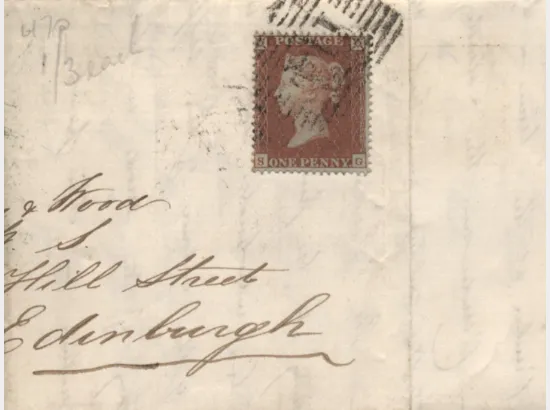 478
1/3 each
POSTAGE
S ONE PENNY G
& Wood
S.
Hill Street
Edinburgh